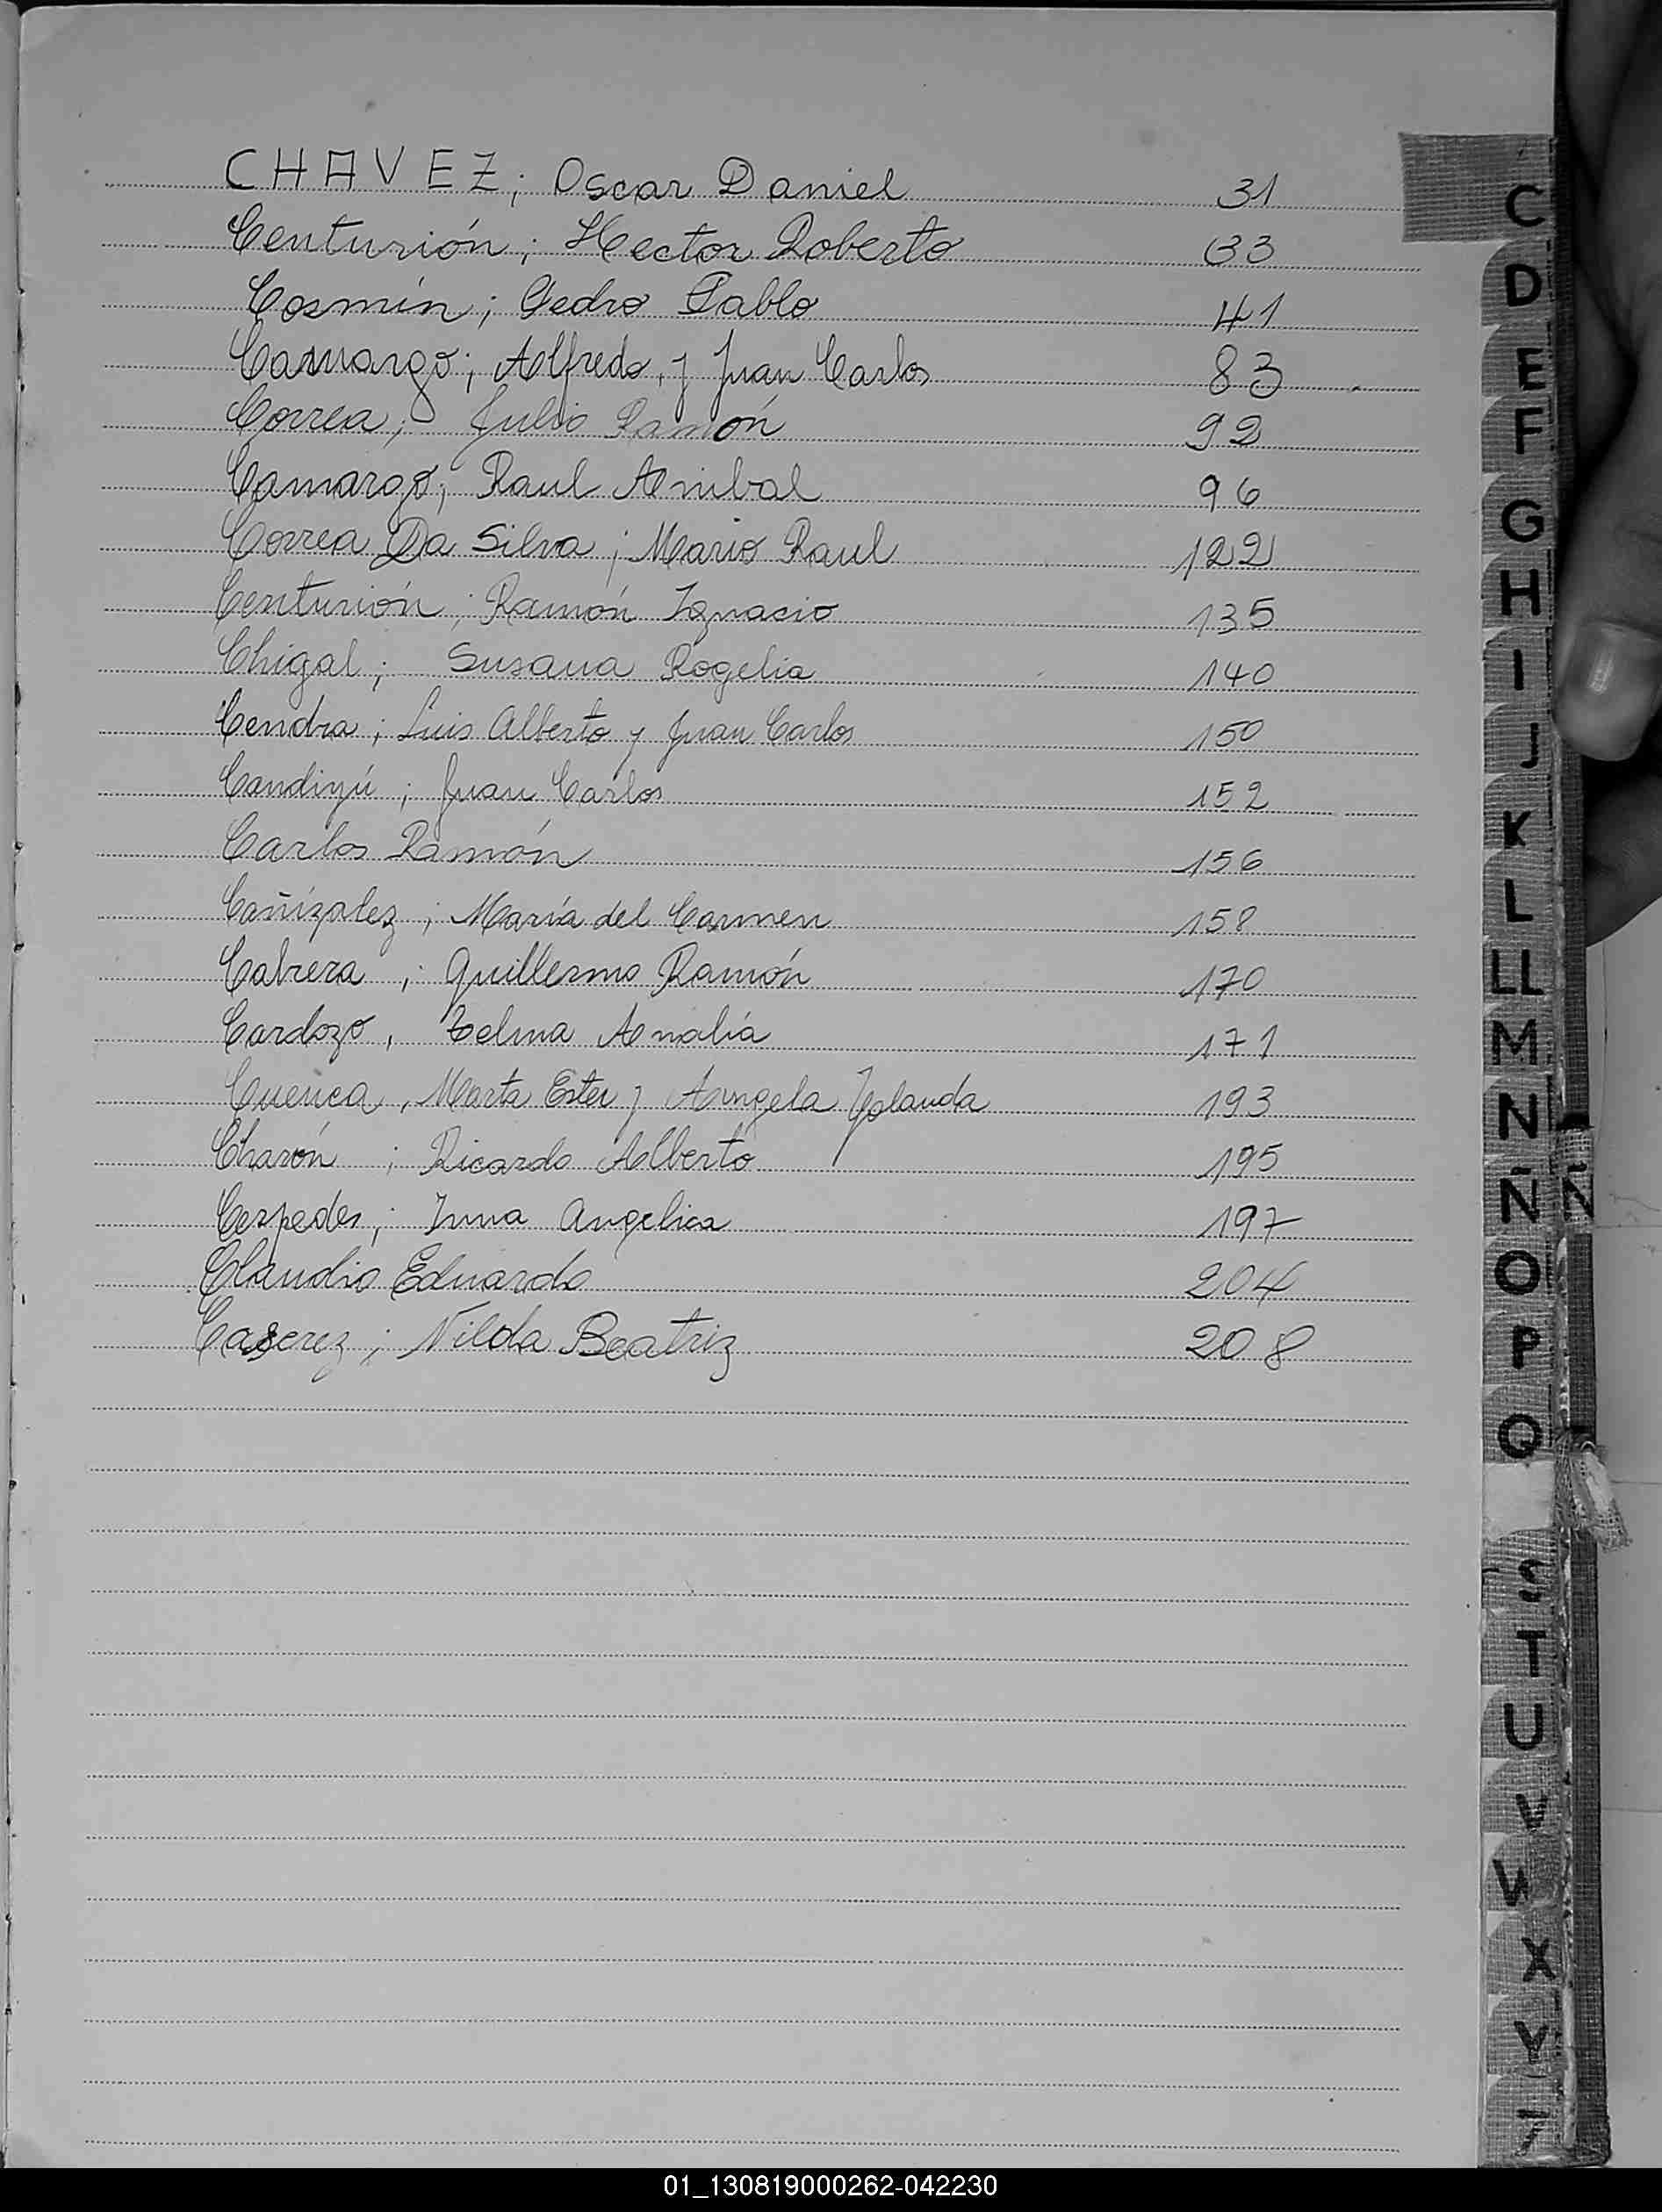 CHAVEZ; Oscar Daniel 31
Centurión; Hector Roberto 33
Cosmin; Pedro Pablo 41
Camargo; Alfredo, y Juan Carlos 83
Correa; Julio Ramón 92
Camargo; Raul Anibal 96
Correa Da Silva; Mario Raul 122
Centurión; Ramón Ignacio 135
Chigal; Susana Rogelia 140
Cendra; Luis Alberto y Juan Carlos 150
Candiyú; Juan Carlos 152
Carlos Ramón 156
Cañizalez; María del Carmen 158
Cabrera; Guillermo Ramón 170
Cardozo, Zelma Analía 171
Cuenca, Marta Ester y Angela Yolanda 193
Charón; Ricardo Alberto 195
Cespedes; Inma Angelica 197
Claudio Eduardo 204
Caserez; Nilda Beatriz 208
C
D
E
F
G
H
I
J
K
L
LL
M
N
Ñ
O
P
Q
T
U
V
W
X
Y
01_130819000262-042230